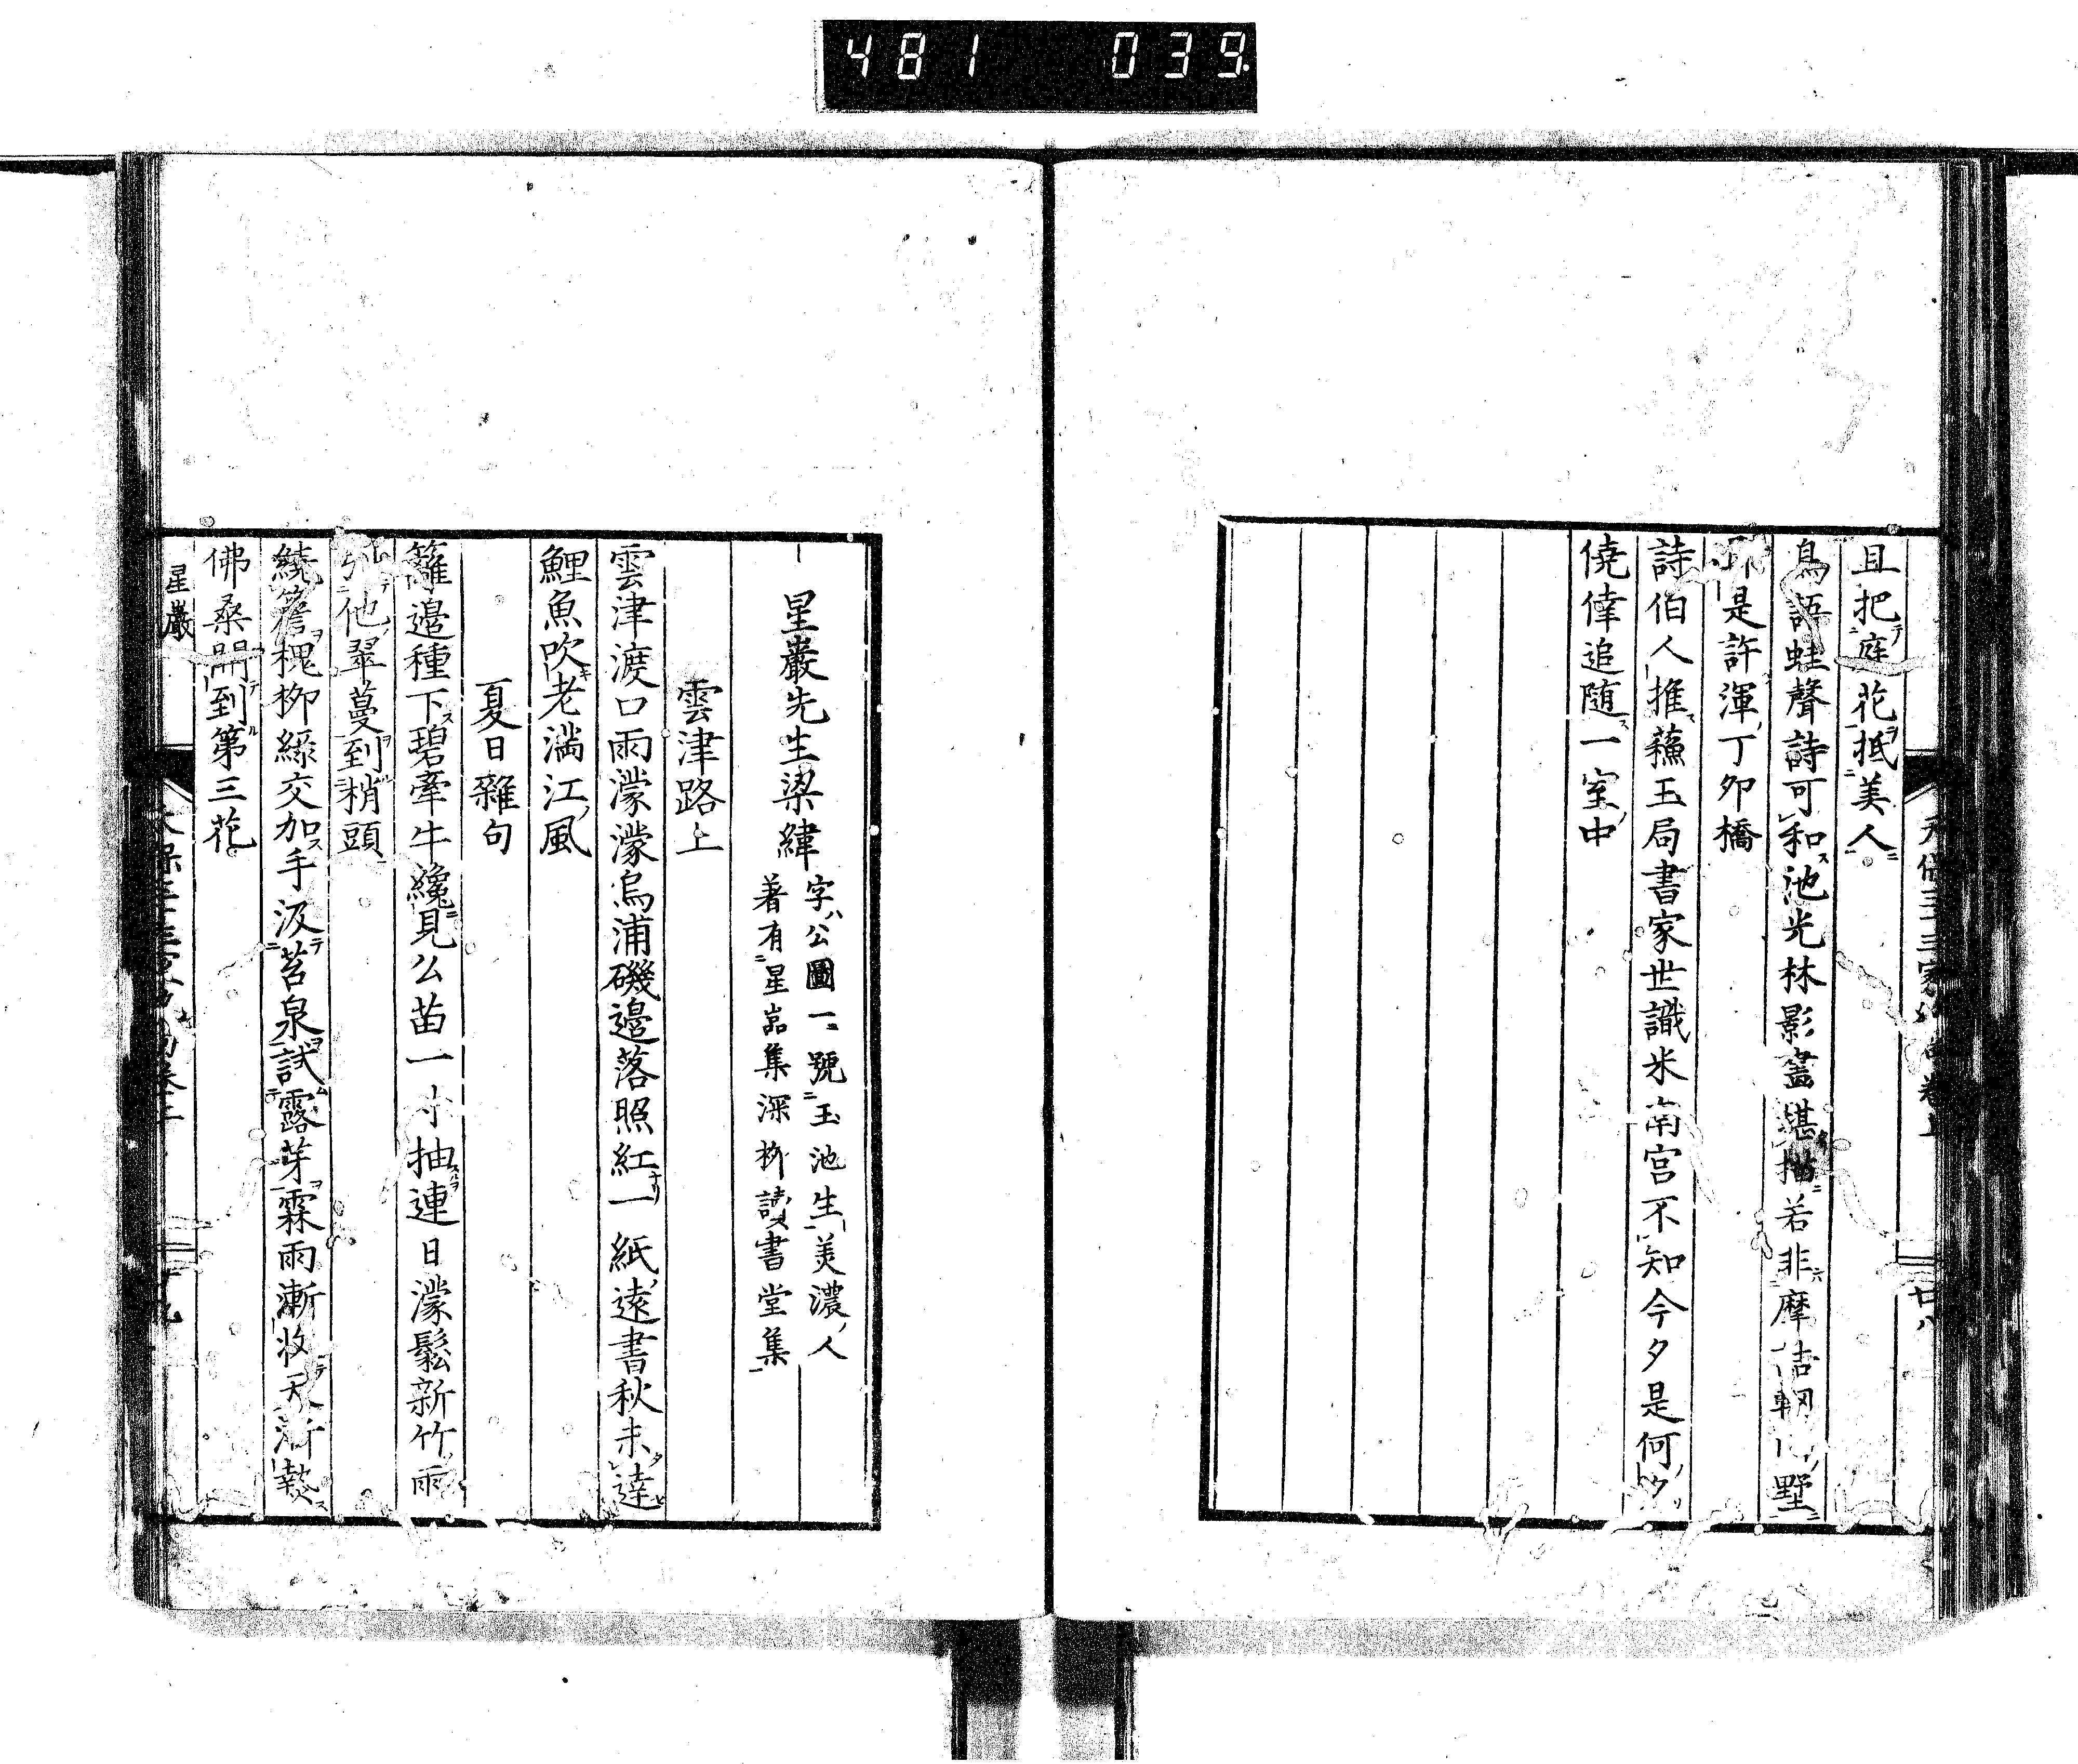 481 039
且把庭花抵美人
鳥語蛙聲詩可和池光林影畫堪描若非摩詰輞川墅
是許渾丁卯橋
詩伯人推蘓玉局書家世識米南宫不知今夕是何夕
僥倖追随一室中
星巌先生梁緯
字公圖一號玉池生美濃人
著有星嵓集深柳讀書堂集
雲津路上
雲津渡口雨濛濛烏浦磯邉落照紅一紙遠書秋未達
鯉魚吹老満江風
夏日雜句
籬邉種下碧牽牛纔見公苗一寸抽連日濛鬆新竹雨
他翠蔓到梢頭
繞簷槐柳緑交加手汲苔泉試露芽霖雨漸收天漸熱
佛桑開到第三花
星巌